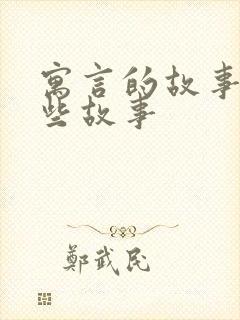 寓言的故事
些故事
鄭武民